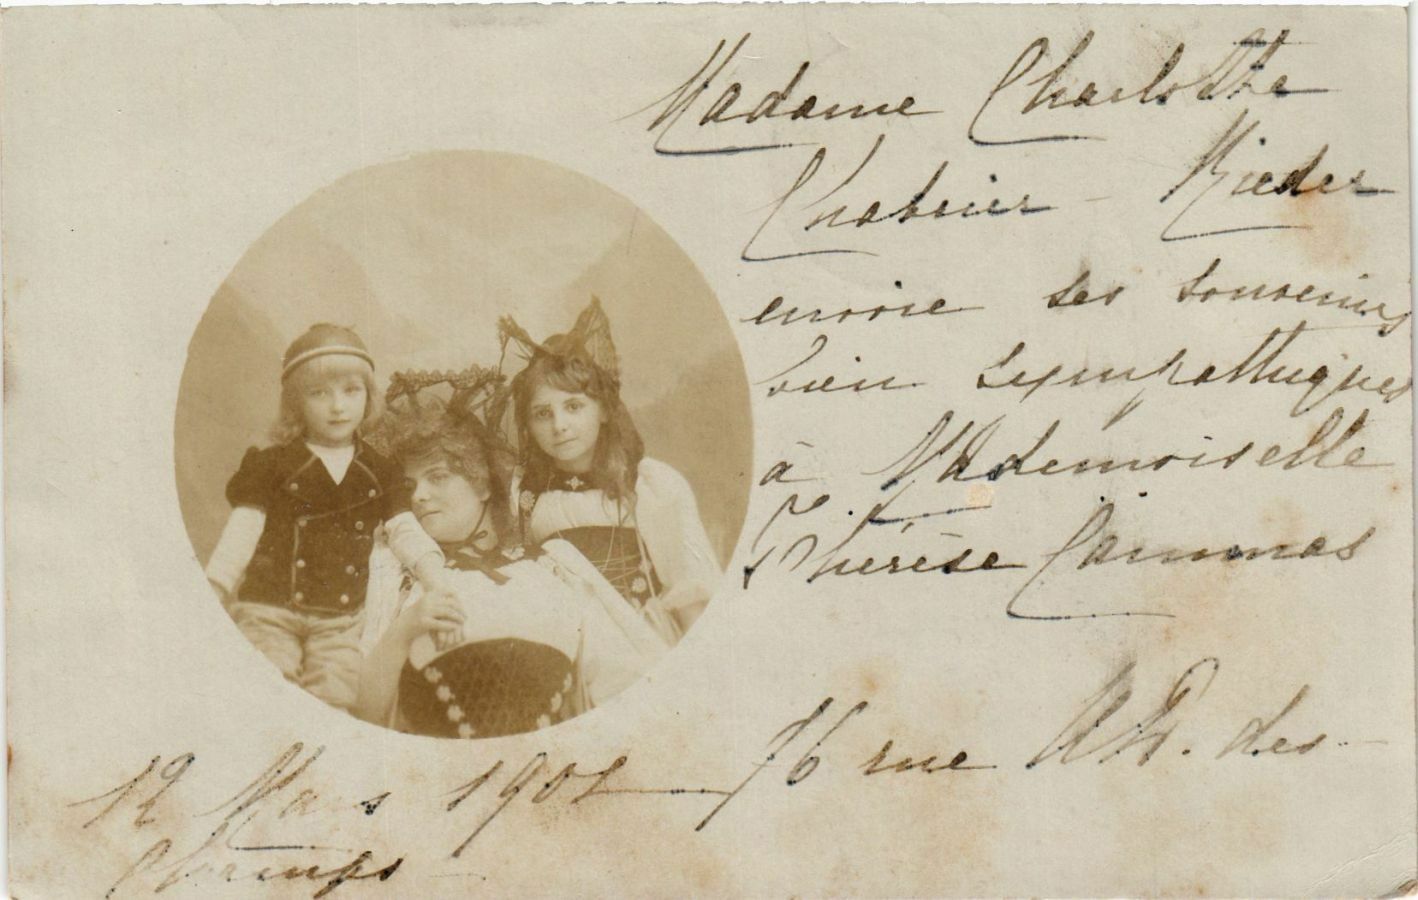 Madame Charlotte
Chabrier - Rieder
envoie ses souvenirs
bien sympathiques
à Mademoiselle
Thérèse Cammas
76 rue N. D. des
12 Mars 1902
Champs